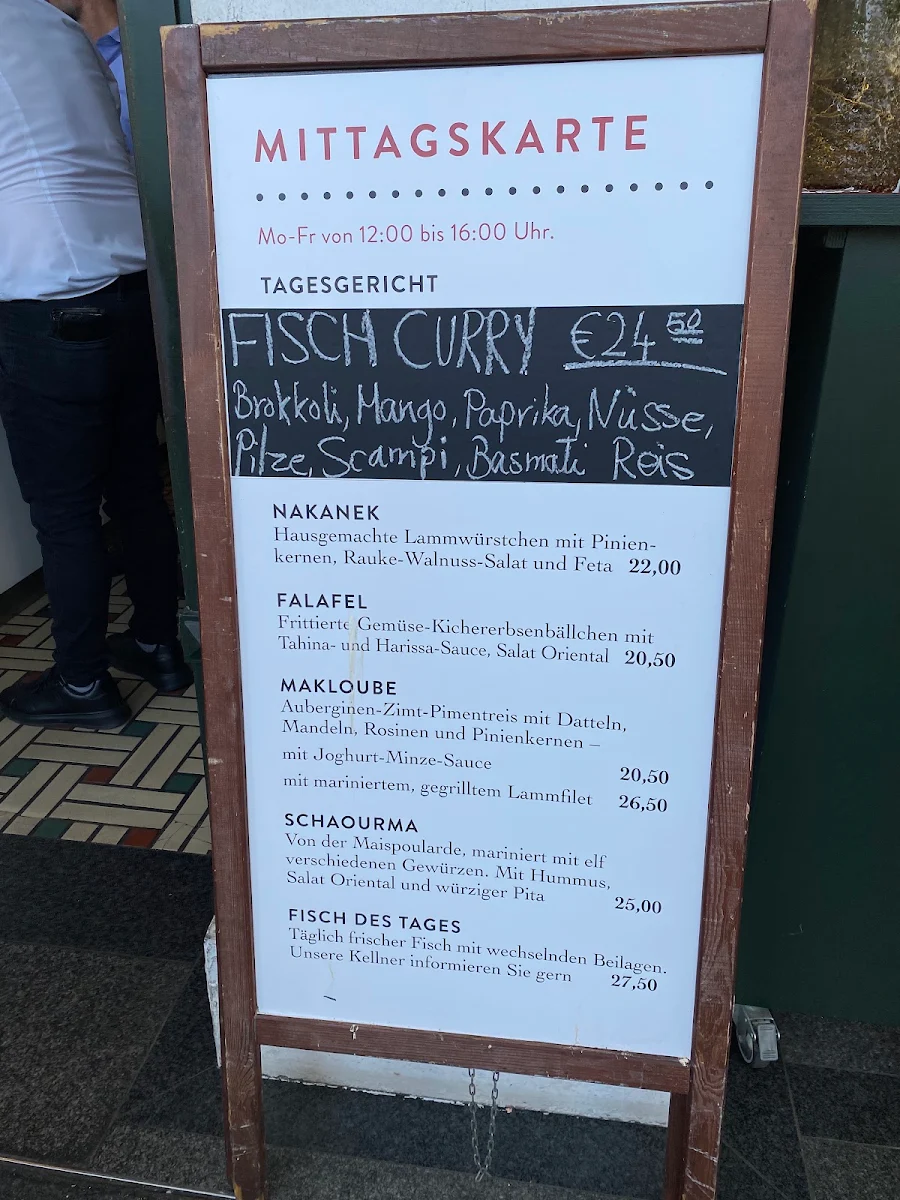 MITTAGSKARTE
Mo-Fr von 12:00 bis 16:00 Uhr.
TAGESGERICHT
FISCH CURRY €24 50
Brokkoli, Mango, Paprika, Nüsse,
Pilze, Scampi, Basmati Reis
NAKANEK
Hausgemachte Lammwürstchen mit Pinien-
kernen, Rauke-Walnuss-Salat und Feta 22,00
FALAFEL
Frittierte Gemüse-Kichererbsenbällchen mit
Tahina- und Harissa-Sauce, Salat Oriental 20,50
MAKLOUBE
Auberginen-Zimt-Pimentreis mit Datteln,
Mandeln, Rosinen und Pinienkernen –
mit Joghurt-Minze-Sauce 20,50
mit mariniertem, gegrilltem Lammfilet 26,50
SCHAOURMA
Von der Maispoularde, mariniert mit elf
verschiedenen Gewürzen. Mit Hummus,
Salat Oriental und würziger Pita 25,00
FISCH DES TAGES
Täglich frischer Fisch mit wechselnden Beilagen.
Unsere Kellner informieren Sie gern 27,50